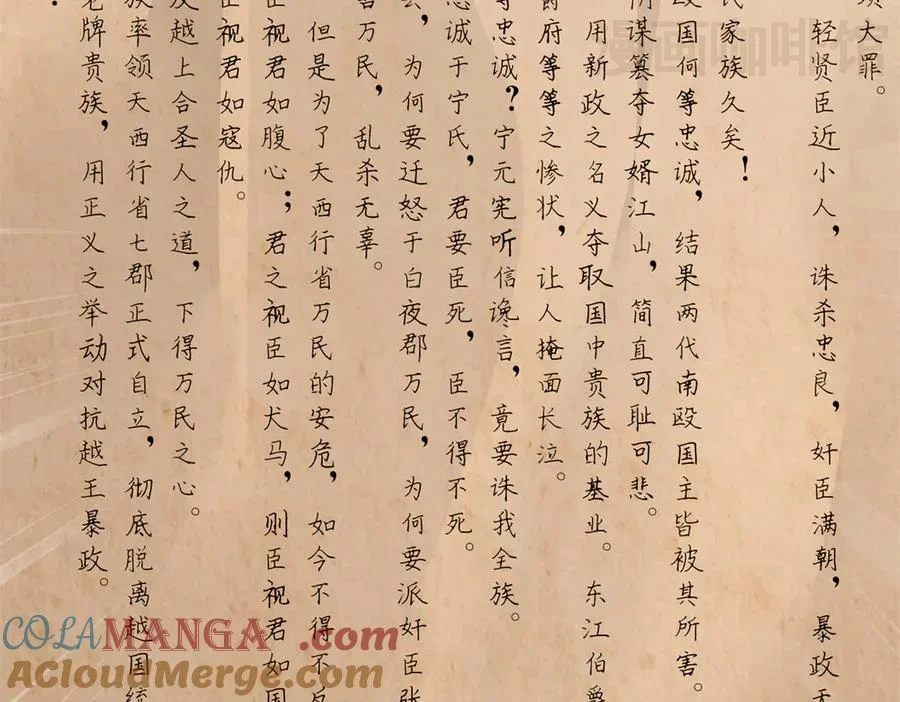 项大罪。
轻贤臣近小人，诛杀忠良，奸臣满朝，暴政无
氏家族久矣！
殴国何等忠诚，结果两代南殴国主皆被其所害。
阴谋篡夺女婿江山，简直可耻可悲。
用新政之名义夺取国中贵族的基业。东江伯爵
爵府等等之惨状，让人掩面长泣。
等忠诚？宁元宪听信谗言，竟要诛我全族。
忠诚于宁氏，君要臣死，臣不得不死。
，为何要迁怒于白夜郡万民，为何要派奸臣张
害万民，乱杀无辜。
但是为了天西行省万民的安危，如今不得不反
臣视君如腹心；君之视臣如犬马，则臣视君如国
臣视君如寇仇。
反越上合圣人之道，下得万民之心。
族率领天西行省七郡正式自立，彻底脱离越国统
老牌贵族，用正义之举动对抗越王暴政。
漫画咖啡馆
COLAMANGA.com
ACloudMerge.com